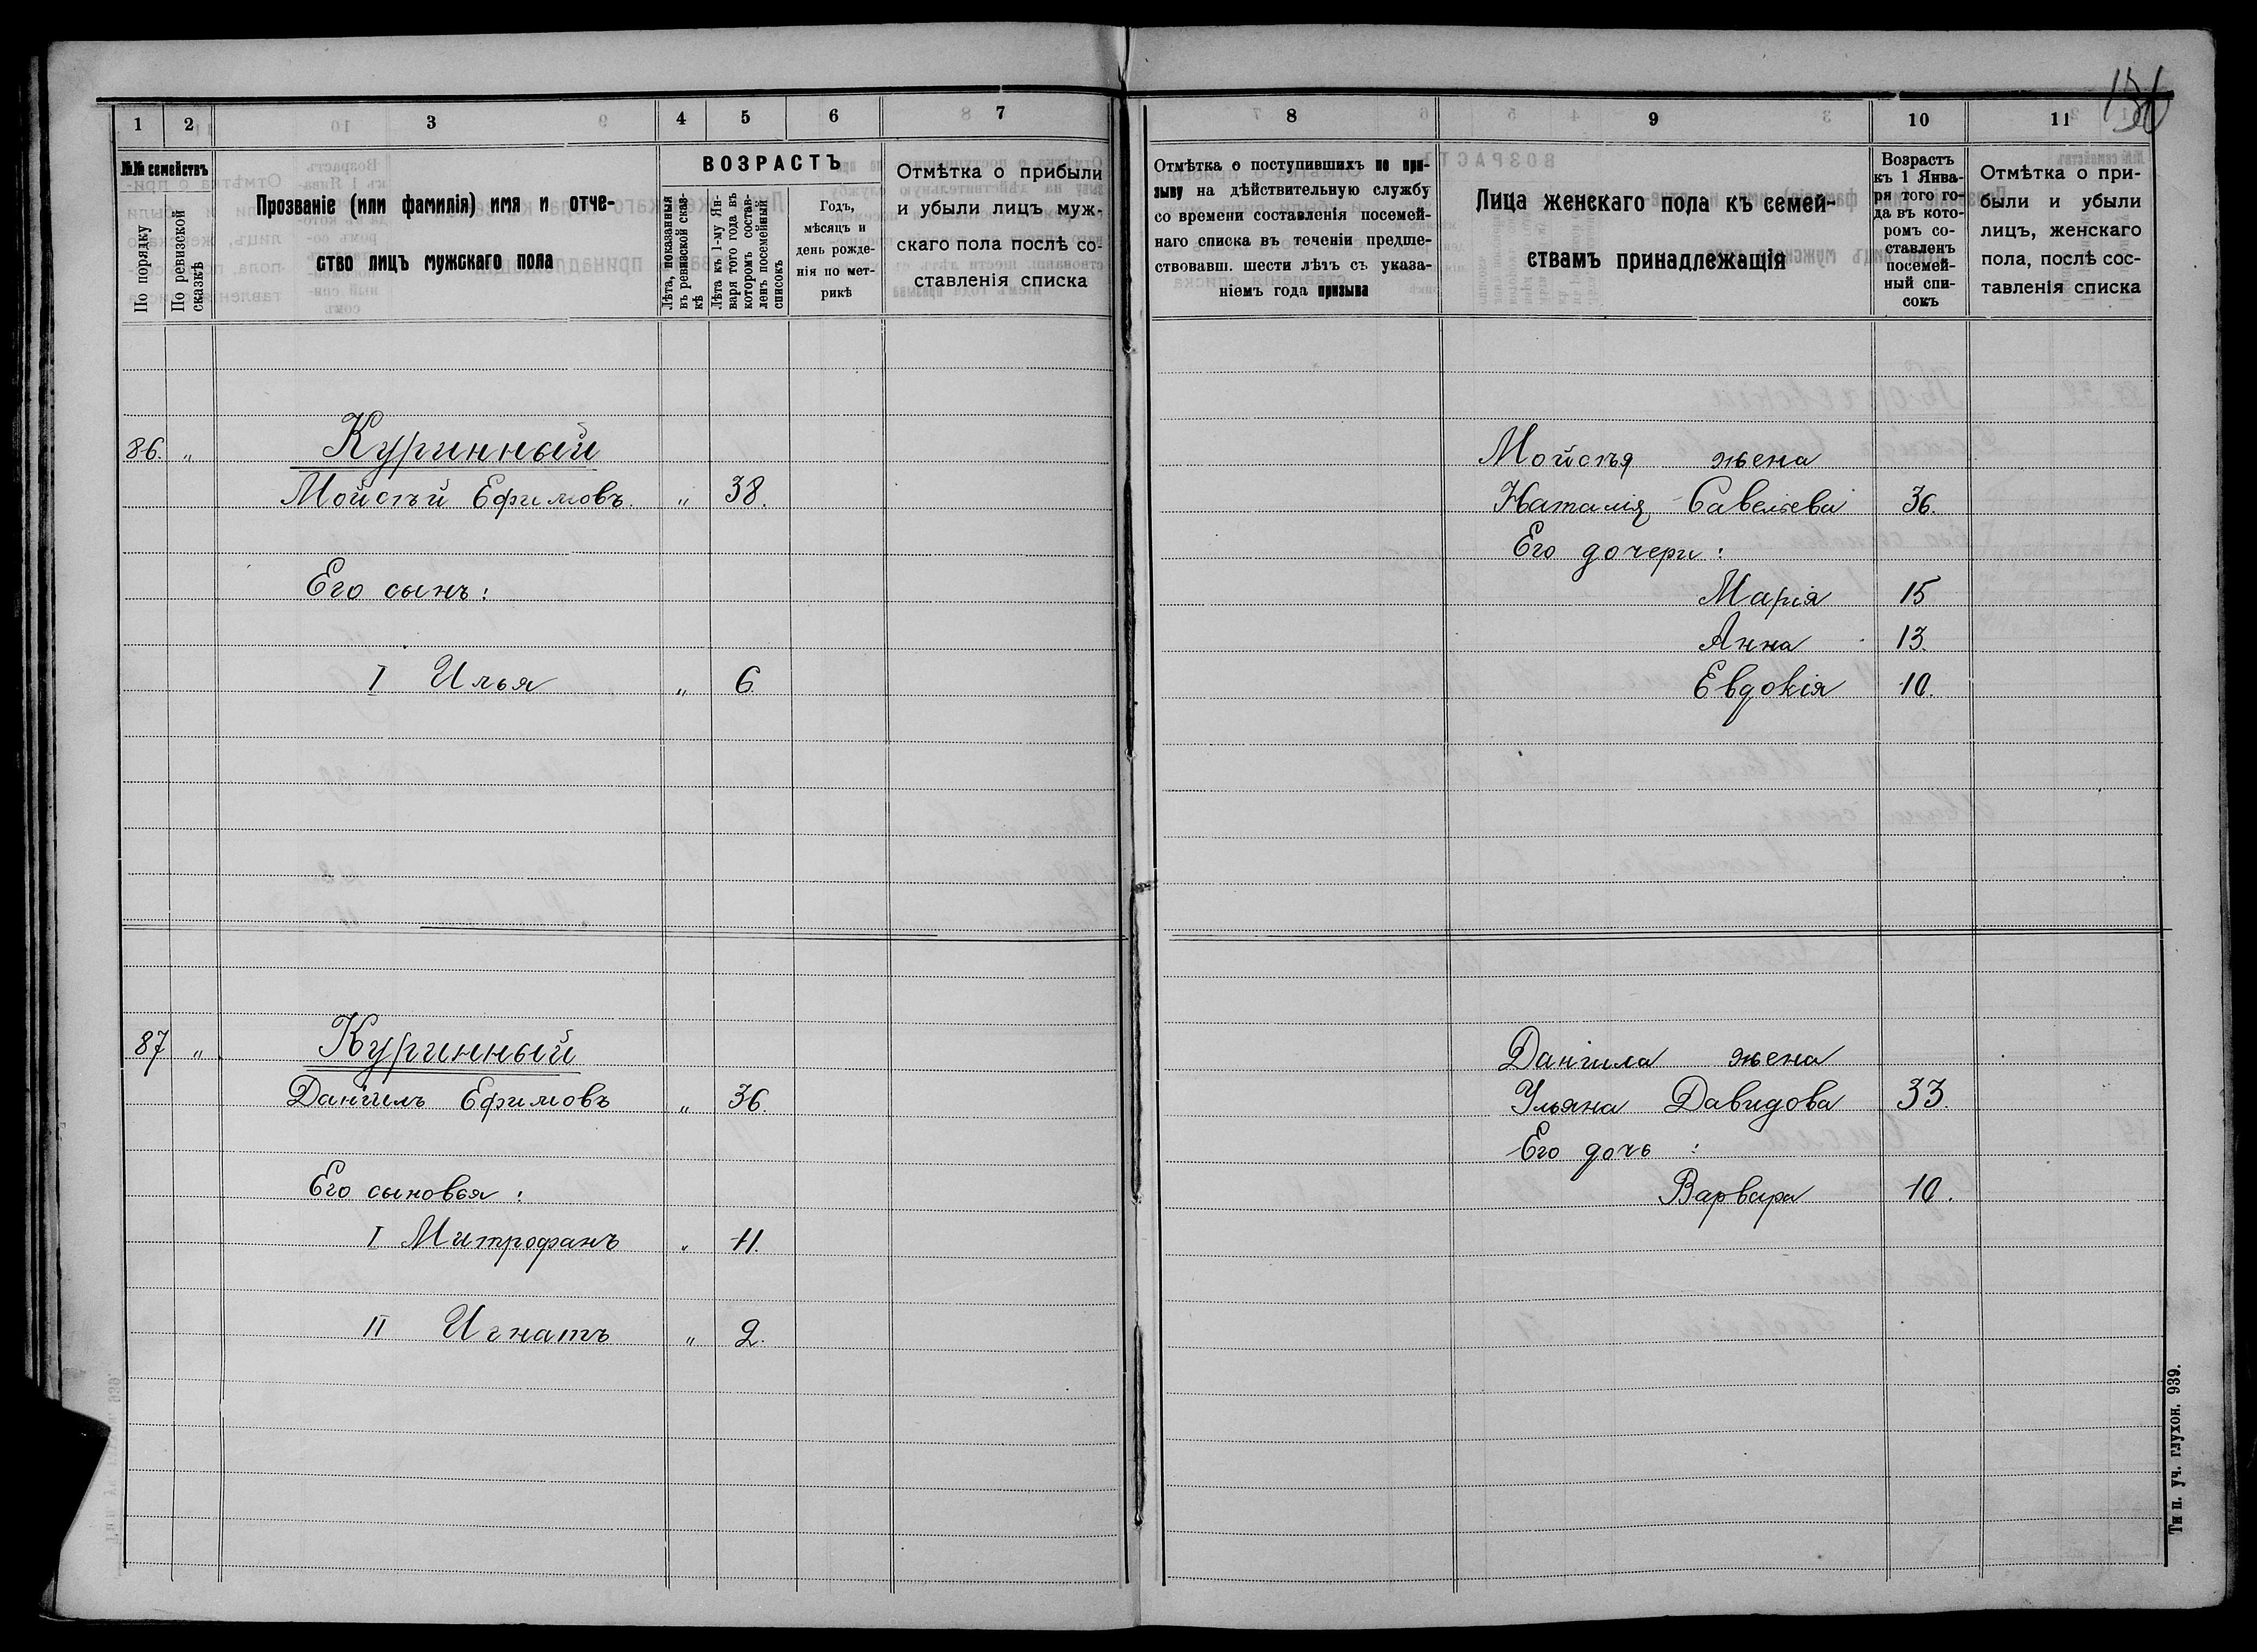 136
1 2 3 4 5 6 7
№№ семействъ
По порядку
По ревизской сказкѣ
Прозваніе (или фамилія) имя и отче-
ство лицъ мужскаго пола
ВОЗРАСТЪ
Лѣта, показанныя
въ ревизской сказ-
кѣ
Лѣта къ 1-му Ян-
варя того года въ
которомъ состав-
ленъ посемейный
списокъ
Годъ,
мѣсяцъ и
день рожде-
нія по мет-
рикѣ
Отмѣтка о прибыли
и убыли лицъ муж-
скаго пола послѣ со-
ставленія списка
86. „ Куринный
Мойсѣй Ефимовъ. „ 38.
Его сынъ:
I Илья „ 6.
87 „ Куринный
Даніилъ Ефимовъ „ 36.
Его сыновья:
I Митрофанъ „ 11.
II Игнатъ „ 2.
8 9 10 11
Отмѣтка о поступившихъ по при-
зыву на дѣйствительную службу
со времени составленія посемей-
наго списка въ теченіи предше-
ствовавш. шести лѣтъ съ указа-
ніемъ года призыва
Лица женскаго пола къ семей-
ствамъ принадлежащія
Возрастъ
къ 1 Янва-
ря того го-
да въ кото-
ромъ со-
ставленъ
посемей-
ный спи-
сокъ
Отмѣтка о при-
были и убыли
лицъ, женскаго
пола, послѣ сос-
тавленія списка
Мойсѣя жена
Наталія Савельева 36.
Его дочери:
Марія 15
Анна 13.
Евдокія 10.
Даніила жена
Ульяна Давидова 33.
Его дочь:
Варвара 10.
Ти п. уч. глухон. 939.